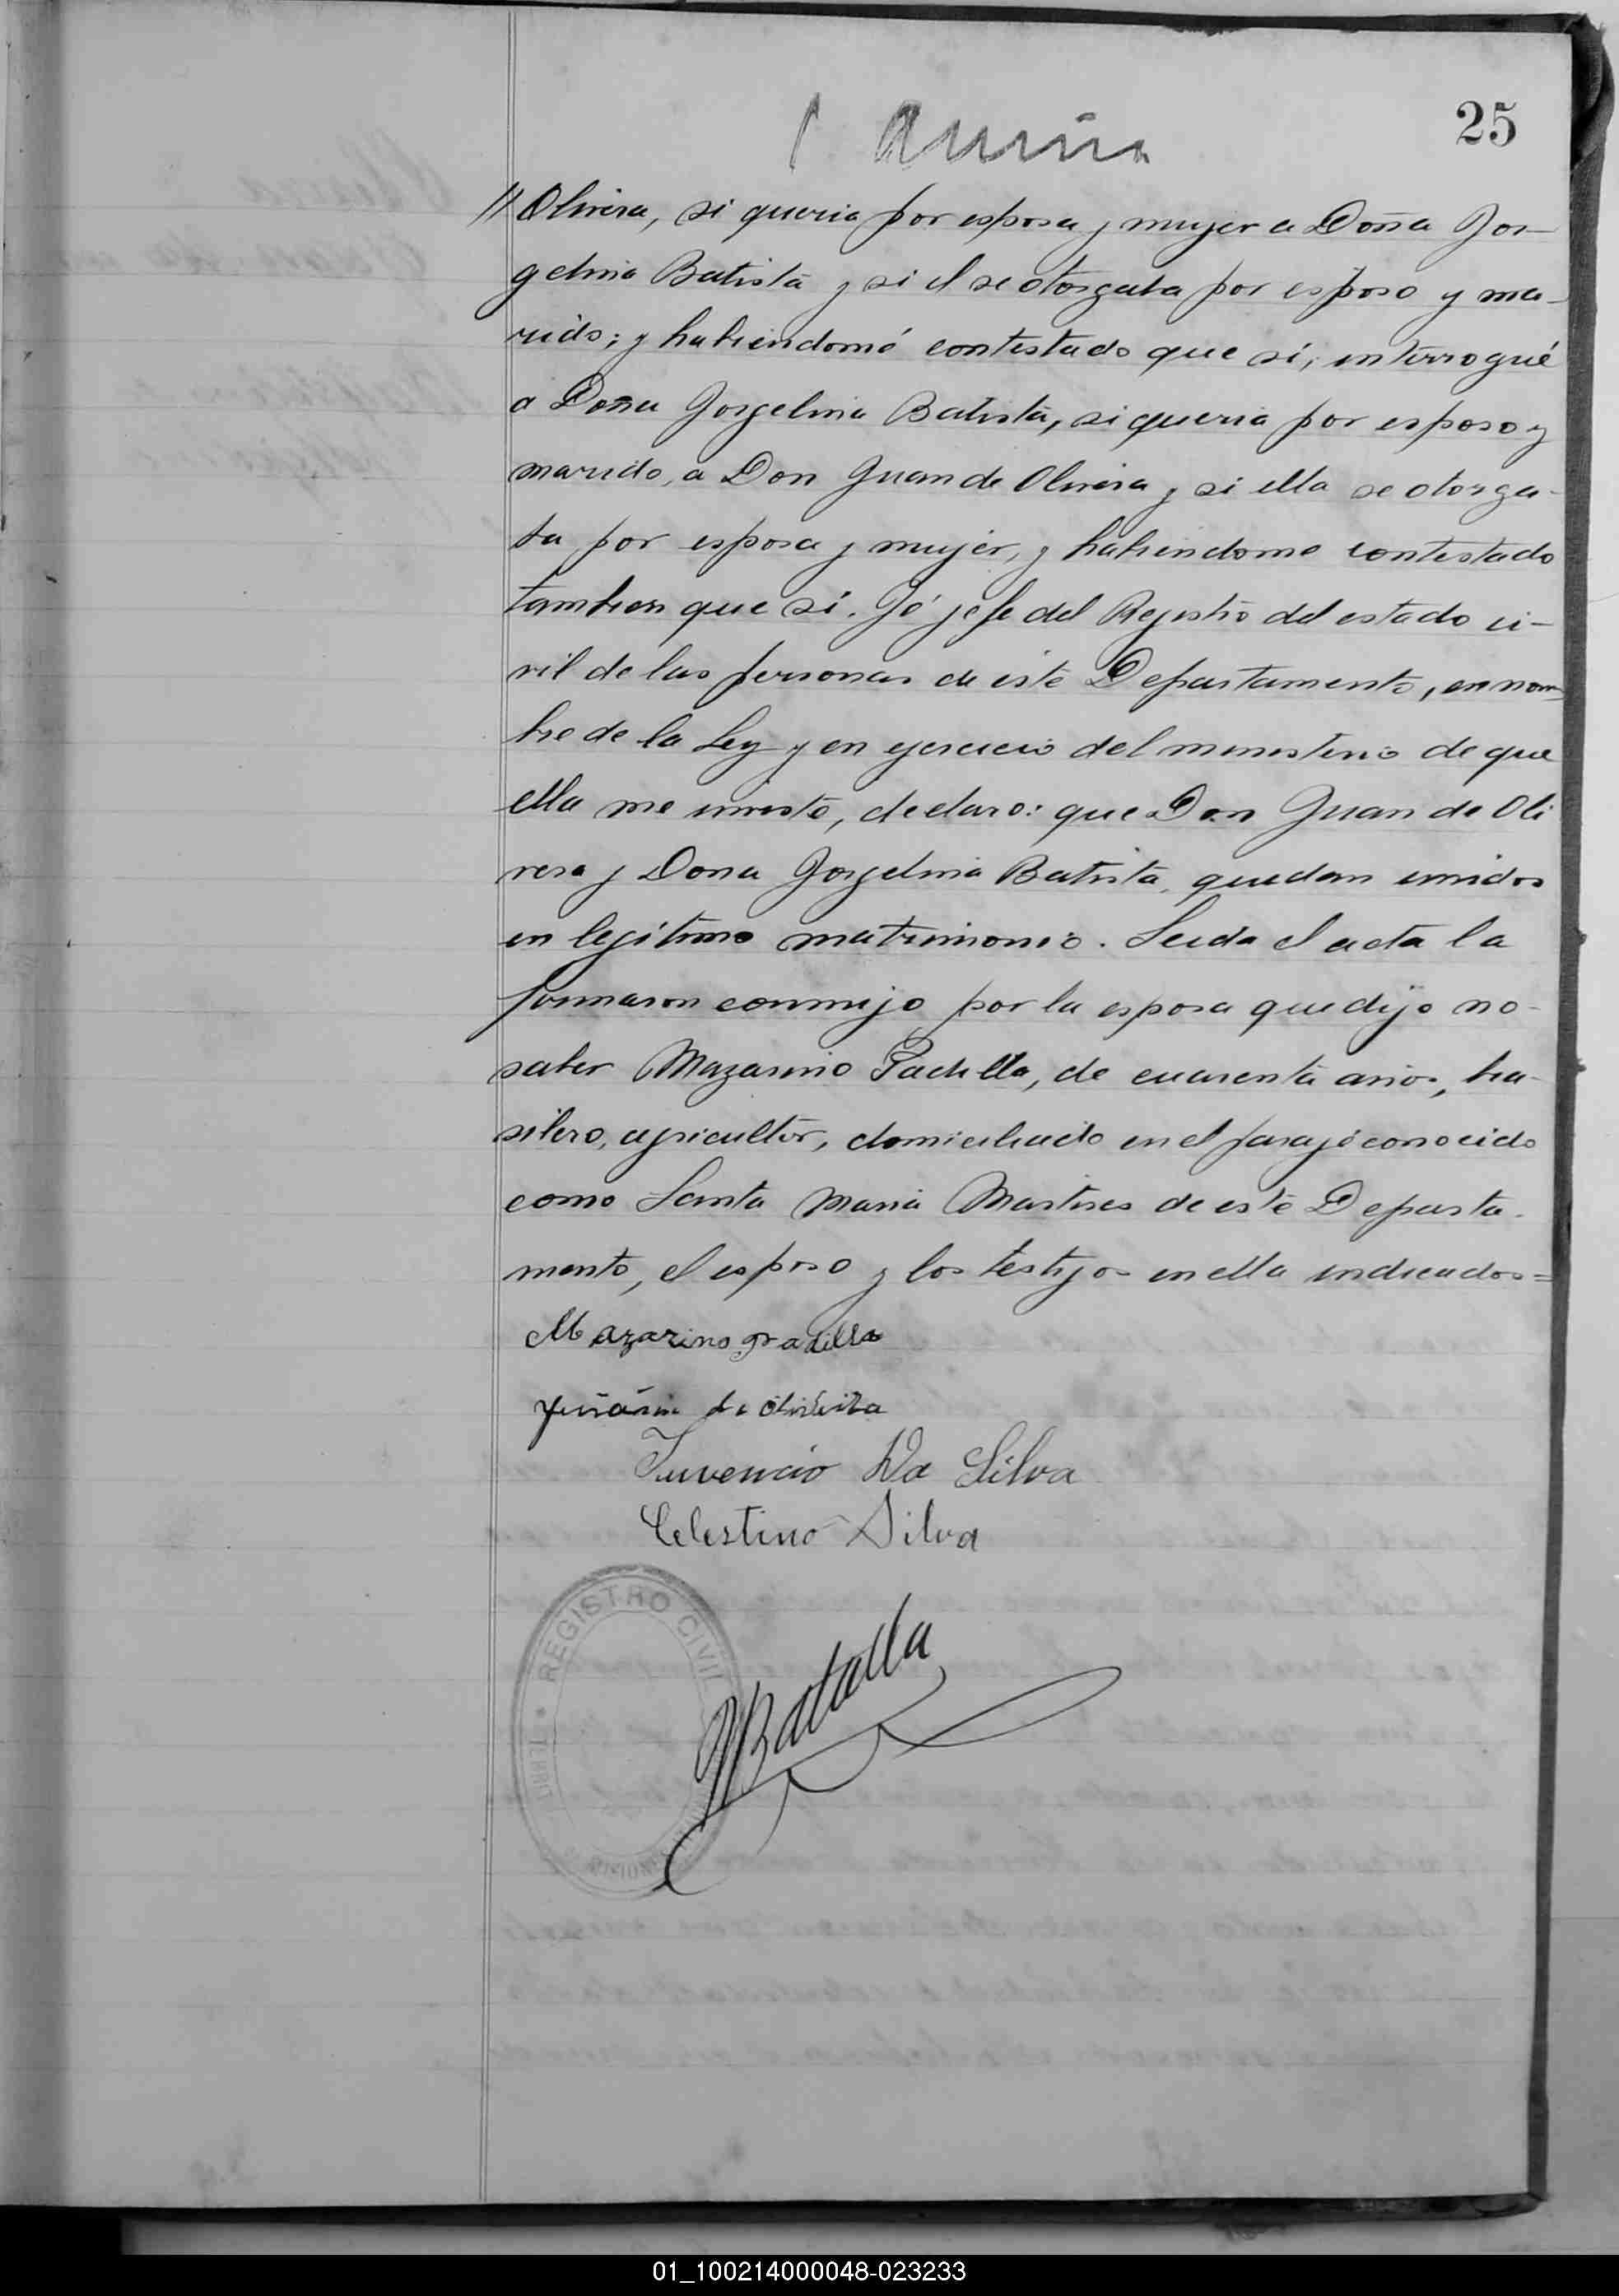 25
// Olivera, si queria por esposa y mujer a Doña Jor-
gelina Batista y si el se otorgaba por esposo y ma-
rido; y habiendomé contestado que sí, interrogué
a Doña Jorgelina Batista, si queria por esposo y
marido, a Don Juan de Olivera y si ella se otorga-
ba por esposa y mujer, y habiendome contestado
tambien que sí. Yó jefe del Registro del estado ci-
vil de las personas de este Departamento, en nom
bre de la Ley y en ejercicio del ministerio de que
ella me inviste, declaro: que Don Juan de Oli
vera y Dona Jorgelina Batista, quedan unidos
en legítimo matrimonio. Leida el acta la
firmaron conmigo por la esposa que dijo no-
saber Mazarino Padilla, de cuarenta años, bra-
silero, agricultor, domiciliado en el paraje conocido
como Santa Maria Martires de este Departa-
mento, el esposo y los testigos en ella indicados=
Mazarino Padilla
de
Juvencio Da Silva
Celestino Silva
REGISTRO CIVIL
Batalla
MISIONES
01_100214000048-023233